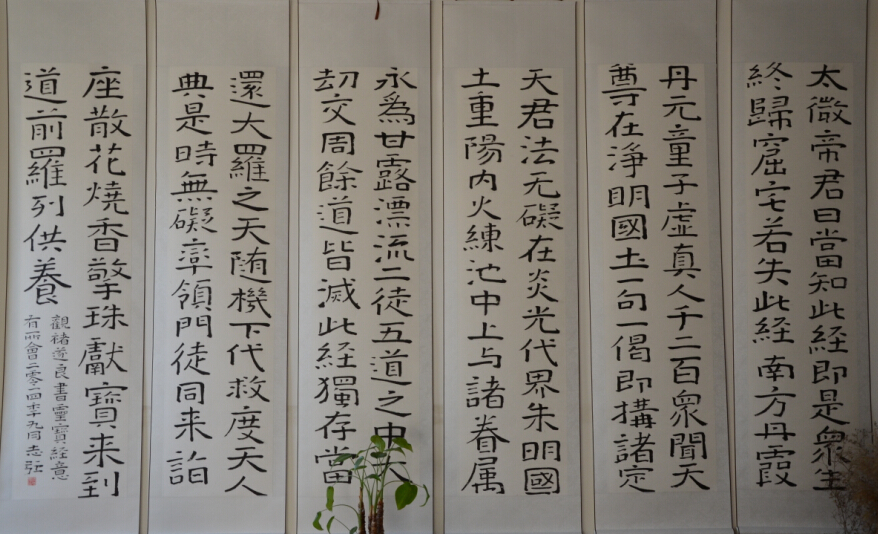 太微帝君曰當知此経即是衆生
終歸窟宅若失此経南方丹霞
丹元童子虛真人千二百衆聞天
尊在淨明國土一句一偈即搆諸定
天君法无礙在炎光代界朱明國
土重陽内火練池中上与諸眷属
永為甘露漂流二徒五道之中大
劫交周餘道皆滅此経獨存當
還大羅之天随機下代救度天人
典是時無礙率領門徒同来詣
座散花燒香擎珠獻寶来到
道前羅列供養
觀褚遂良書靈寶経意
有所會二零一四年九月志强